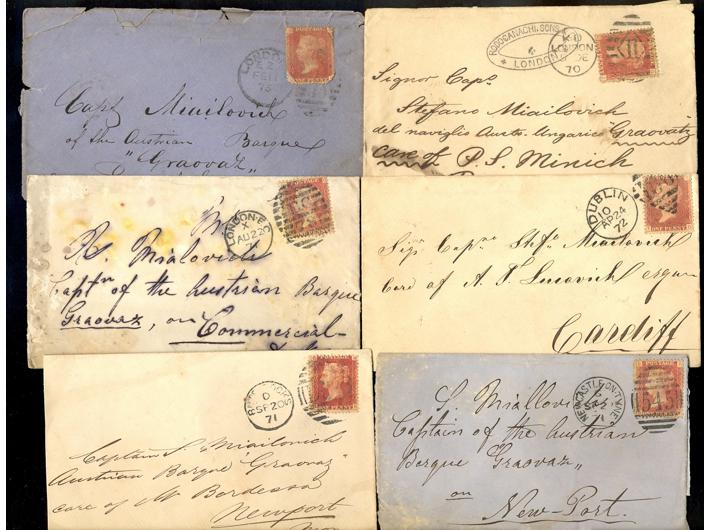 LONDON
FE 11
73
Capt Miailovich
of the Austrian Barque
"Graovaz"
RODOCANACHI, SONS & Co
LONDON
LONDON
70
Signor Capn.
Stefano Miailovich
del naviglio Austo-Ungarico Graovatz
care of P. S. Minich
LONDON-E.C
X
AU 22
Mialovich
Captn of the Austrian Barque
Graovaz, on Commercial-
DUBLIN
10
AP 24
72
Sigr Capne Stefo Miailovich
Care of A. Lucovich esqre
Cardiff
D
SP 20
71
Captain S. Miailovich
Austrian Barque "Graovaz"
care of Mr Bordessa
Newport
NEWCASTLE-ON-TYNE
71
545
S. Miallovics
Captain of the Austrian
Barque Graovaz„
on
New-Port.